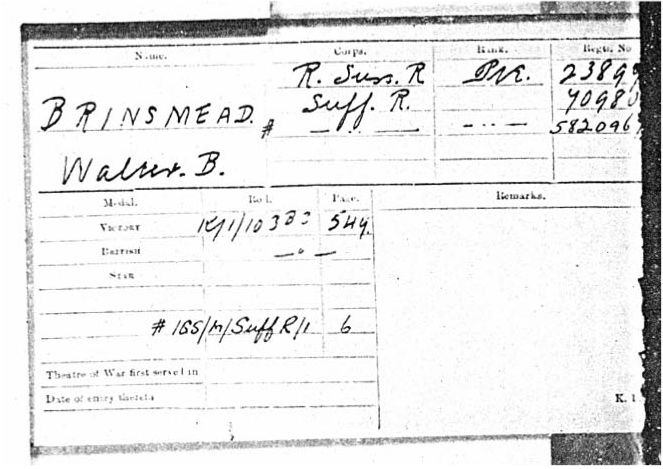 Name. Corps. Rank. Regtl. No
R. Suss. R Pte. 2389
BRINSMEAD. Suff. R. 7098
# — .. — — .. — 582096
Walter. B.
Medal. Roll. Page. Remarks.
Victory K/1/103 B3 544.
British — " —
Star
# IGS/M/Suff R/1 6
Theatre of War first served in
Date of entry therein
K. 1